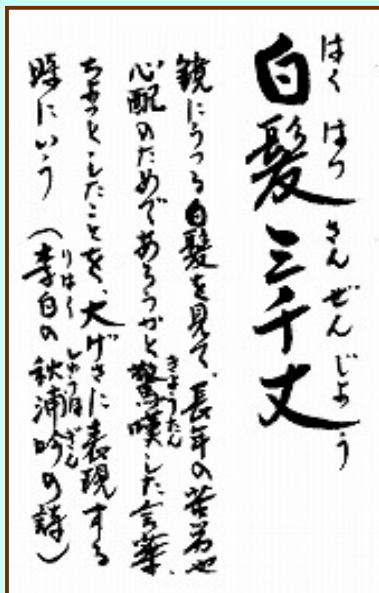 白髪三千丈
はくはつさんぜんじょう
鏡にうつる白髪を見て、長年の苦労や
心配のためであろうかと驚嘆した言葉、
きょうたん
ちょっとしたことを、大げさに表現する
時にいう（李白の秋浦吟の詩）
りはく しゅうほぎん